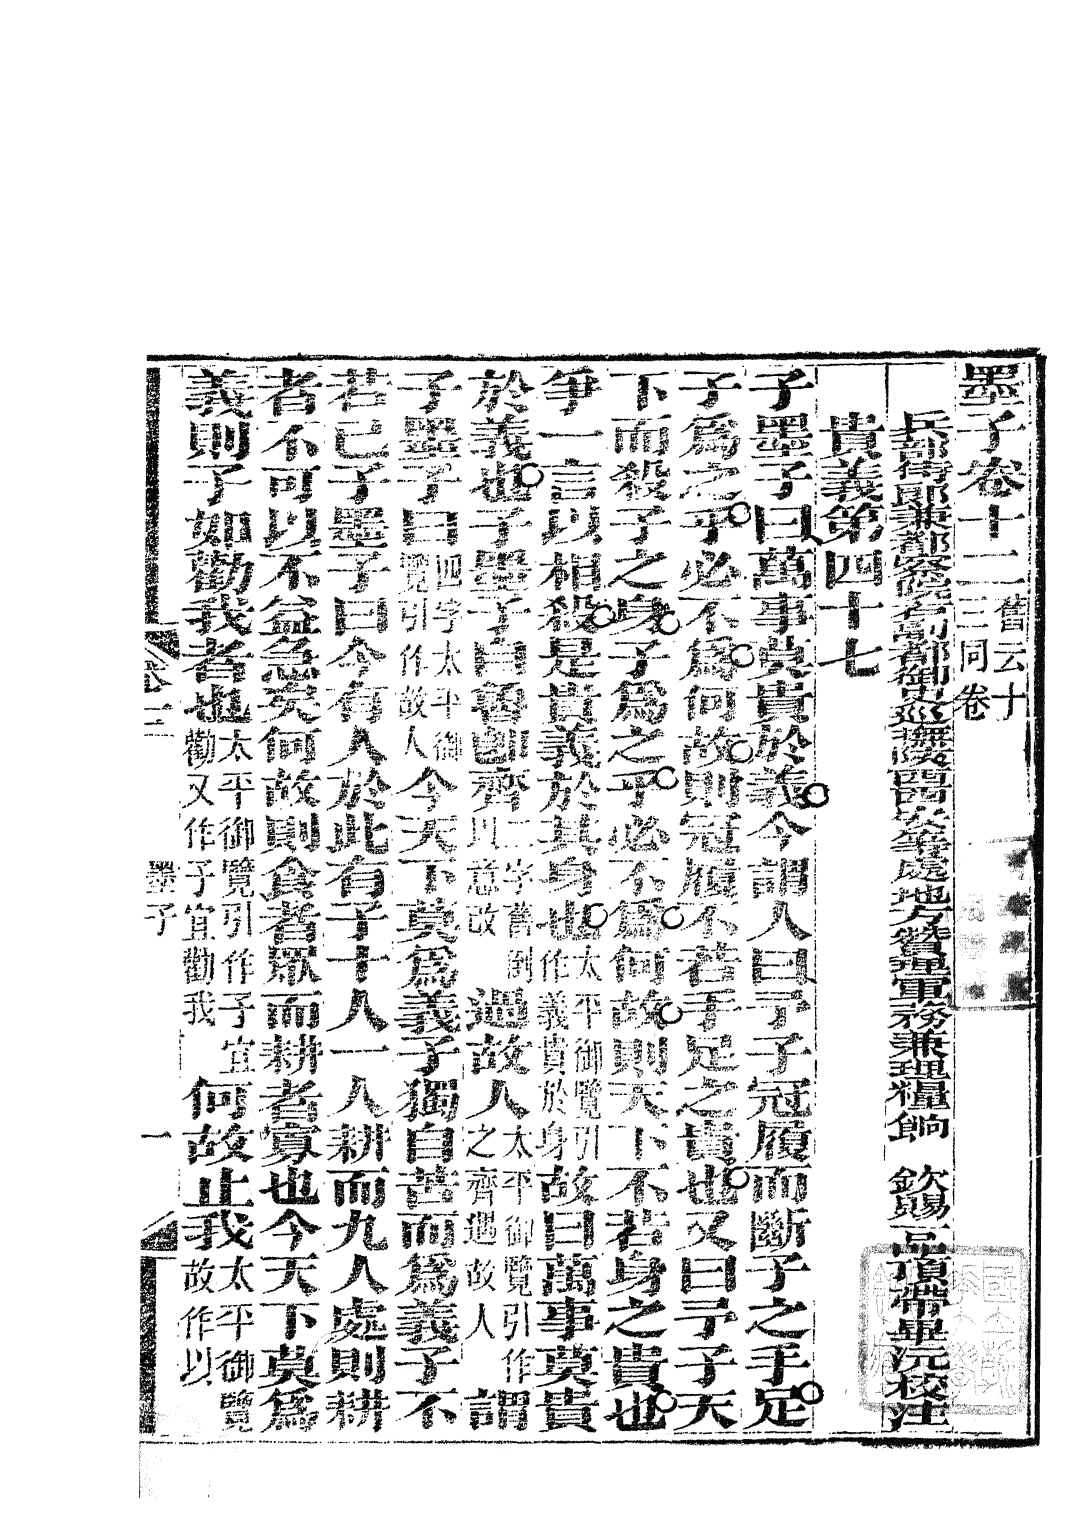 墨子卷十二舊云十三同卷
兵部侍郎兼都察院右副都御史巡撫陝西西安等處地方贊理軍務兼理糧餉 欽賜一品頂帶畢沅校注
貴義第四十七
子墨子曰萬事莫貴於義今謂人曰予子冠履而斷子之手足
子爲之乎必不爲何故則冠履不若手足之貴也又曰予子天
下而殺子之身子爲之乎必不爲何故則天下不若身之貴也
爭一言以相殺是貴義於其身也太平御覽引作義貴於身故曰萬事莫貴
於義也子墨子自魯卽齊二字舊倒以意改過故人太平御覽引作之齊遇故人謂
子墨子曰四字太平御覽引作故人今天下莫爲義子獨自苦而爲義子不
若已子墨子曰今有人於此有子十人一人耕而九人處則耕
者不可以不益急矣何故則食者眾而耕者寡也今天下莫爲
義則子如勸我者也太平御覽引作子宜勸又作子宜勸我何故止我太平御覽故作以
卷十二
墨子
一